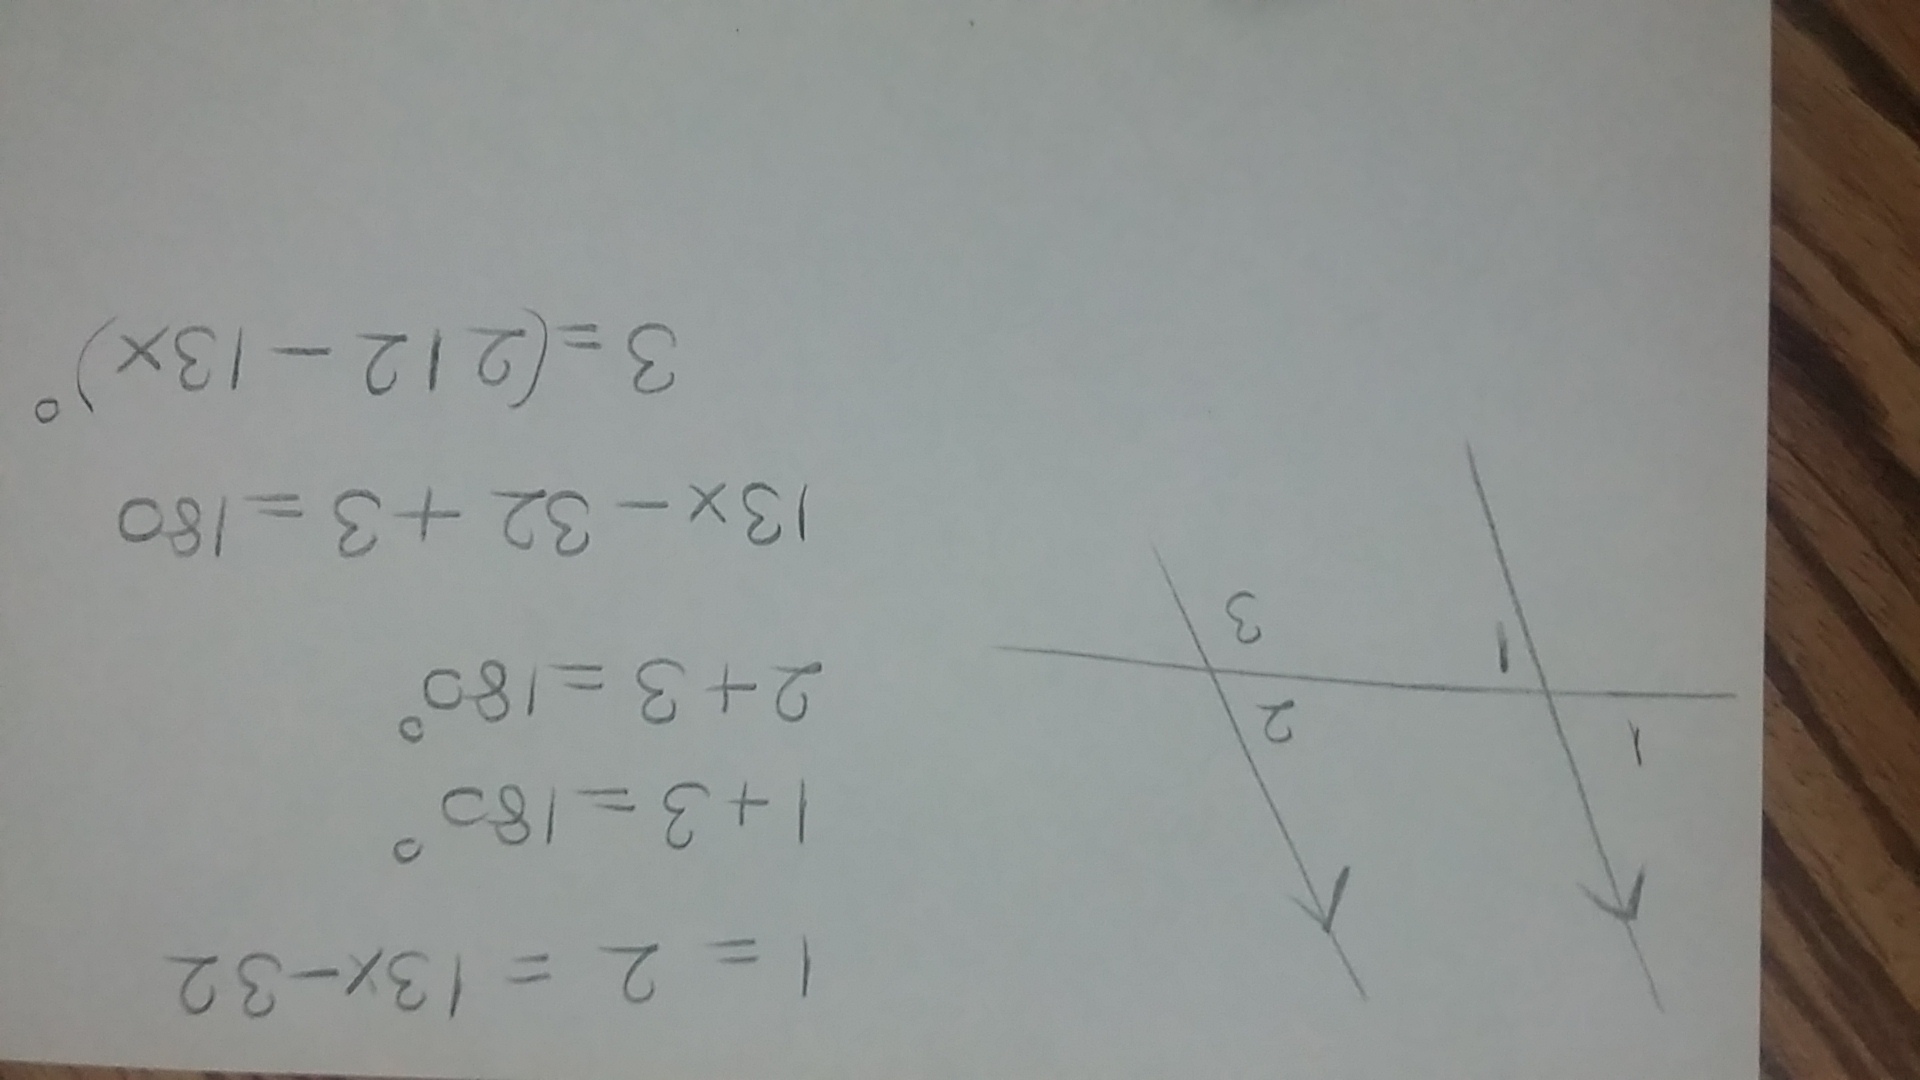 1 = 2 = 13x-32
1+3=180°
2+3=180°
13x-32+3=180
3=(212-13x)°
1
2
1
3